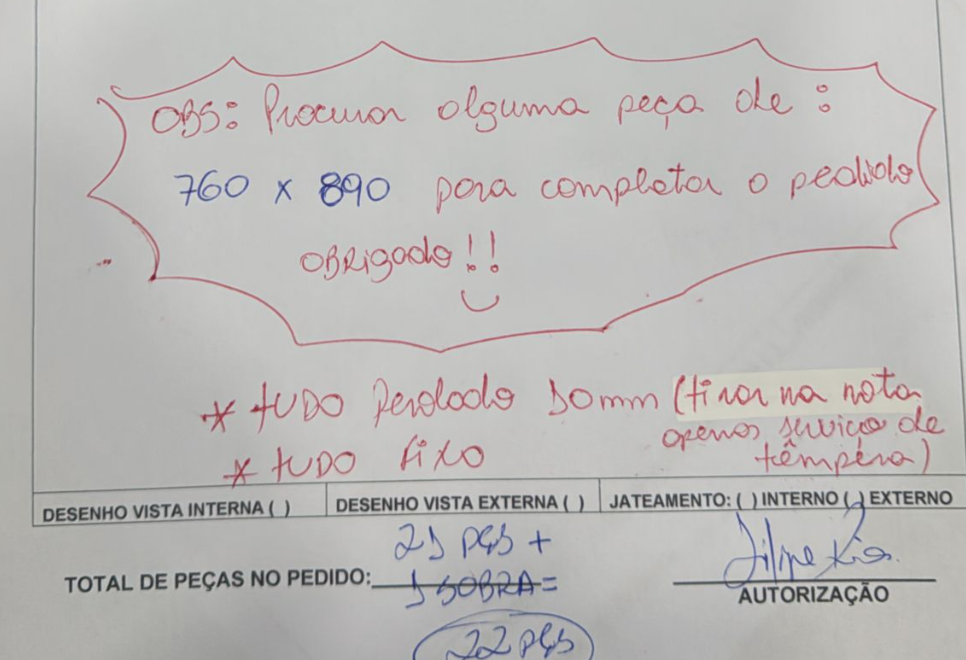 OBS: Procurar alguma peça de :
760 x 890 para completar o pedido
OBRigado!!
* tUDO Perolado 10mm (tirar na nota
apenas serviço de
têmpera)
* tUDO fixo
DESENHO VISTA INTERNA ( ) DESENHO VISTA EXTERNA ( ) JATEAMENTO: ( ) INTERNO ( ) EXTERNO
21 PÇS +
TOTAL DE PEÇAS NO PEDIDO: 1 SOBRA =
22 PÇS
Filipe
AUTORIZAÇÃO